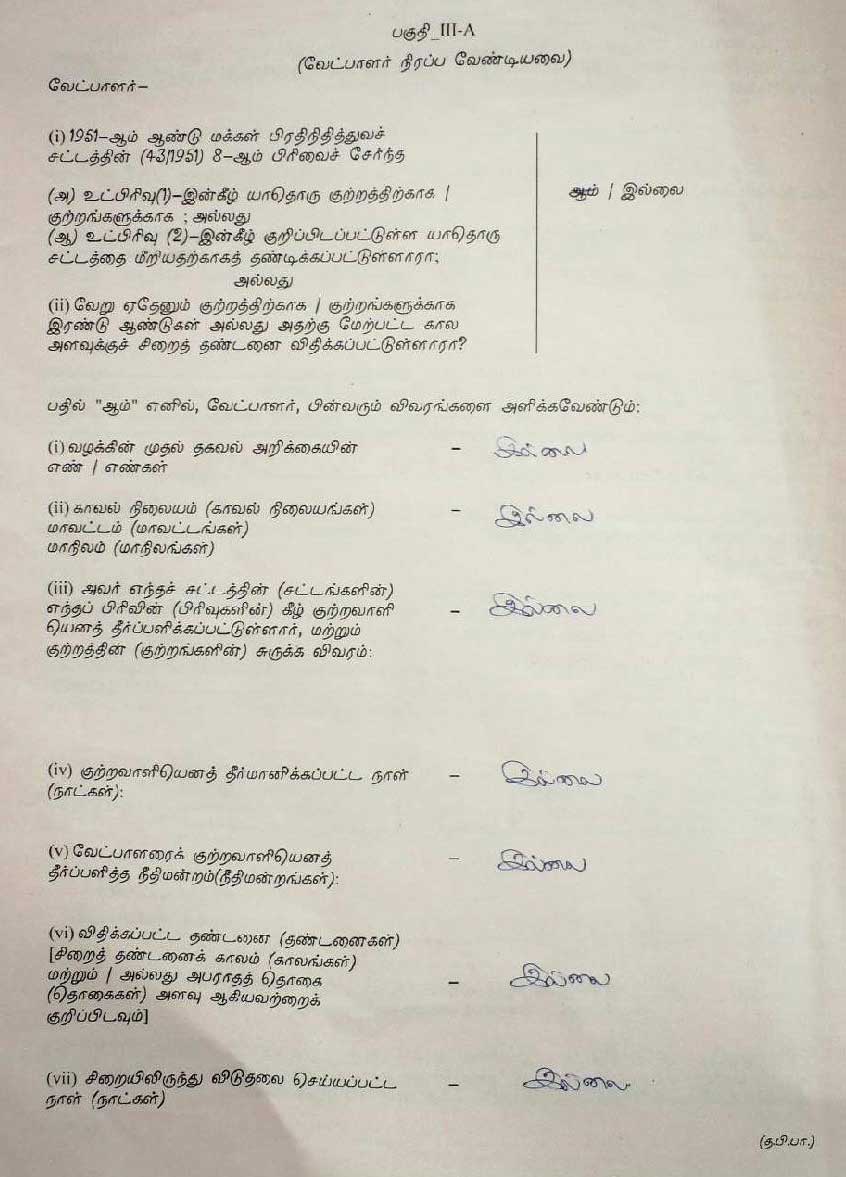 பகுதி_III-A
(வேட்பாளர் நிரப்ப வேண்டியவை)
வேட்பாளர்–
(i) 1951–ஆம் ஆண்டு மக்கள் பிரதிநிதித்துவச்
சட்டத்தின் (43/1951) 8–ஆம் பிரிவைச் சேர்ந்த
(அ) உட்பிரிவு(1)–இன்கீழ் யாதொரு குற்றத்திற்காக |
ஆம் | இல்லை
குற்றங்களுக்காக ; அல்லது
(ஆ) உட்பிரிவு (2)–இன்கீழ் குறிப்பிடப்பட்டுள்ள யாதொரு
சட்டத்தை மீறியதற்காகத் தண்டிக்கப்பட்டுள்ளாரா;
அல்லது
(ii) வேறு ஏதேனும் குற்றத்திற்காக | குற்றங்களுக்காக
இரண்டு ஆண்டுகள் அல்லது அதற்கு மேற்பட்ட கால
அளவுக்குச் சிறைத் தண்டனை விதிக்கப்பட்டுள்ளாரா?
பதில் "ஆம்" எனில், வேட்பாளர், பின்வரும் விவரங்களை அளிக்கவேண்டும்:
(i) வழக்கின் முதல் தகவல் அறிக்கையின் – இல்லை
எண் | எண்கள்
(ii) காவல் நிலையம் (காவல் நிலையங்கள்) – இல்லை
மாவட்டம் (மாவட்டங்கள்)
மாநிலம் (மாநிலங்கள்)
(iii) அவர் எந்தச் சட்டத்தின் (சட்டங்களின்)
எந்தப் பிரிவின் (பிரிவுகளின்) கீழ் குற்றவாளி – இல்லை
யெனத் தீர்ப்பளிக்கப்பட்டுள்ளார், மற்றும்
குற்றத்தின் (குற்றங்களின்) சுருக்க விவரம்:
(iv) குற்றவாளியெனத் தீர்மானிக்கப்பட்ட நாள் – இல்லை
(நாட்கள்):
(v) வேட்பாளரைக் குற்றவாளியெனத் – இல்லை
தீர்ப்பளித்த நீதிமன்றம்(நீதிமன்றங்கள்):
(vi) விதிக்கப்பட்ட தண்டனை (தண்டனைகள்)
[சிறைத் தண்டனைக் காலம் (காலங்கள்)
மற்றும் | அல்லது அபராதத் தொகை – இல்லை
(தொகைகள்) அளவு ஆகியவற்றைக்
குறிப்பிடவும்]
(vii) சிறையிலிருந்து விடுதலை செய்யப்பட்ட – இல்லை
நாள் (நாட்கள்)
(த.பி.பா.)